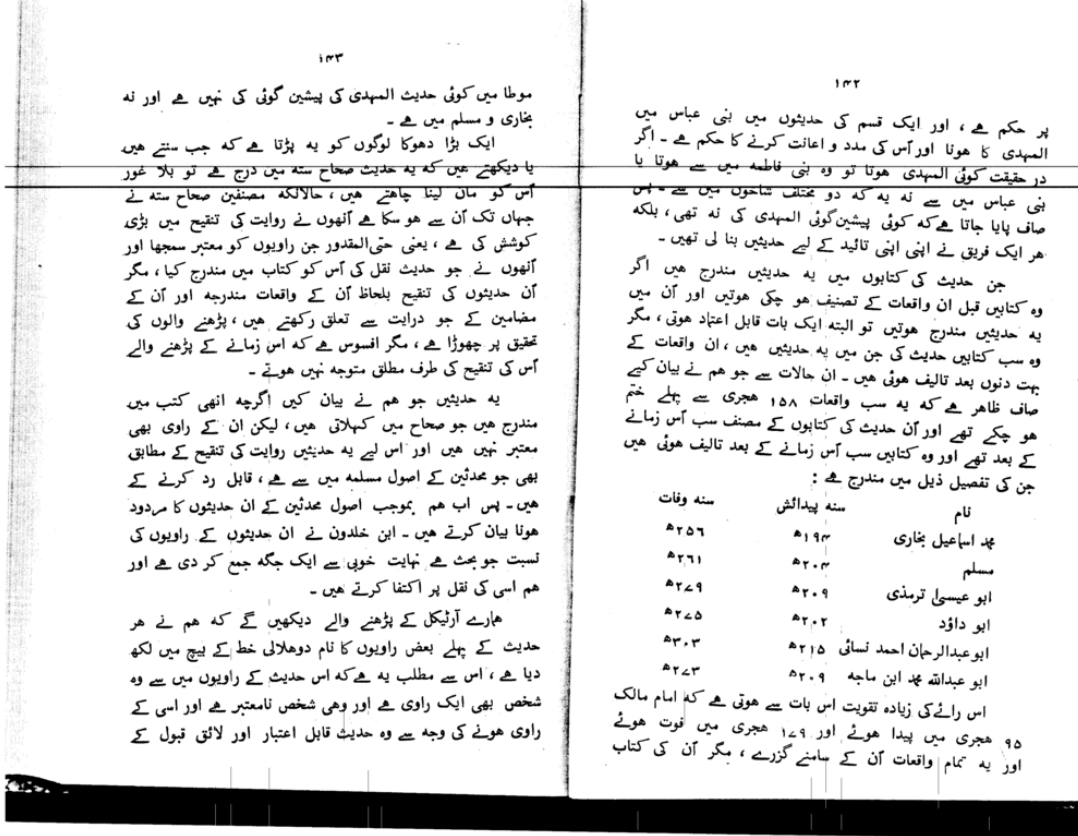 ۱۴۲
پر حکم ہے، اور ایک قسم کی حدیثوں میں بنی عباس میں
المہدی کا ہونا اور اُس کی مدد و اعانت کرنے کا حکم ہے۔ اگر
در حقیقت کوئی المہدی ہوتا تو وہ بنی فاطمہ میں سے ہوتا یا
بنی عباس میں سے نہ یہ کہ دو مختلف شاخوں میں سے۔ پس
صاف پایا جاتا ہے کہ کوئی پیشین گوئی المہدی کی نہ تھی، بلکہ
ہر ایک فریق نے اپنی اپنی تائید کے لیے حدیثیں بنا لی تھیں۔
جن حدیث کی کتابوں میں یہ حدیثیں مندرج ہیں اگر
وہ کتابیں قبل ان واقعات کے تصنیف ہو چکی ہوتیں اور اُن میں
یہ حدیثیں مندرج ہوتیں تو البتہ ایک بات قابل اعتماد ہوتی، مگر
وہ سب کتابیں حدیث کی جن میں یہ حدیثیں ہیں، ان واقعات کے
بہت دنوں بعد تالیف ہوئی ہیں۔ ان حالات سے جو ہم نے بیان کیے
صاف ظاہر ہے کہ یہ سب واقعات ۱۵۸ ہجری سے پہلے ختم
ہو چکے تھے اور اُن حدیث کی کتابوں کے مصنف سب اُس زمانے
کے بعد تھے اور وہ کتابیں سب اُس زمانے کے بعد تالیف ہوئی ہیں
جن کی تفصیل ذیل میں مندرج ہے :
نام سنہ پیدائش سنہ وفات
محمد اسماعیل بخاری ۱۹۴ھ ۲۵۶ھ
مسلم ۲۰۴ھ ۲۶۱ھ
ابو عیسیٰ ترمذی ۲۰۹ھ ۲۷۹ھ
ابو داؤد ۲۰۲ھ ۲۷۵ھ
ابو عبدالرحمان احمد نسائی ۲۱۵ھ ۳۰۳ھ
ابو عبداللہ محمد ابن ماجہ ۲۰۹ھ ۲۷۳ھ
اس رائے کی زیادہ تقویت اس بات سے ہوتی ہے کہ امام مالک
۹۵ ہجری میں پیدا ہوئے اور ۱۷۹ ہجری میں فوت ہوئے
اور یہ تمام واقعات اُن کے سامنے گزرے، مگر اُن کی کتاب
۱۴۳
موطا میں کوئی حدیث المہدی کی پیشین گوئی کی نہیں ہے اور نہ
بخاری و مسلم میں ہے۔
ایک بڑا دھوکا لوگوں کو یہ پڑتا ہے کہ جب سنتے ہیں
یا دیکھتے ہیں کہ یہ حدیث صحاح ستہ میں درج ہے تو بلا غور
اُس کو مان لینا چاہتے ہیں، حالانکہ مصنفین صحاح ستہ نے
جہاں تک اُن سے ہو سکا ہے اُنھوں نے روایت کی تنقیح میں بڑی
کوشش کی ہے، یعنی حتی المقدور جن راویوں کو معتبر سمجھا اور
اُنھوں نے جو حدیث نقل کی اُس کو کتاب میں مندرج کیا، مگر
اُن حدیثوں کی تنقیح بلحاظ اُن کے واقعات مندرجہ اور اُن کے
مضامین کے جو درایت سے تعلق رکھتے ہیں، پڑھنے والوں کی
تحقیق پر چھوڑا ہے، مگر افسوس ہے کہ اس زمانے کے پڑھنے والے
اُس کی تنقیح کی طرف مطلق متوجہ نہیں ہوتے۔
یہ حدیثیں جو ہم نے بیان کیں اگرچہ انھی کتب میں
مندرج ہیں جو صحاح میں کہلاتی ہیں، لیکن ان کے راوی بھی
معتبر نہیں ہیں اور اس لیے یہ حدیثیں روایت کی تنقیح کے مطابق
بھی جو محدثین کے اصول مسلمہ میں سے ہے، قابل رد کرنے کے
ہیں۔ پس اب ہم بموجب اصول محدثین کے ان حدیثوں کا مردود
ہونا بیان کرتے ہیں۔ ابن خلدون نے ان حدیثوں کے راویوں کی
نسبت جو بحث ہے نہایت خوبی سے ایک جگہ جمع کر دی ہے اور
ہم اسی کی نقل پر اکتفا کرتے ہیں۔
ہمارے آرٹیکل کے پڑھنے والے دیکھیں گے کہ ہم نے ہر
حدیث کے پہلے بعض راویوں کا نام دو ھلالی خط کے بیچ میں لکھ
دیا ہے، اس سے مطلب یہ ہے کہ اس حدیث کے راویوں میں سے وہ
شخص بھی ایک راوی ہے اور وہی شخص نامعتبر ہے اور اسی کے
راوی ہونے کی وجہ سے وہ حدیث قابل اعتبار اور لائق قبول کے